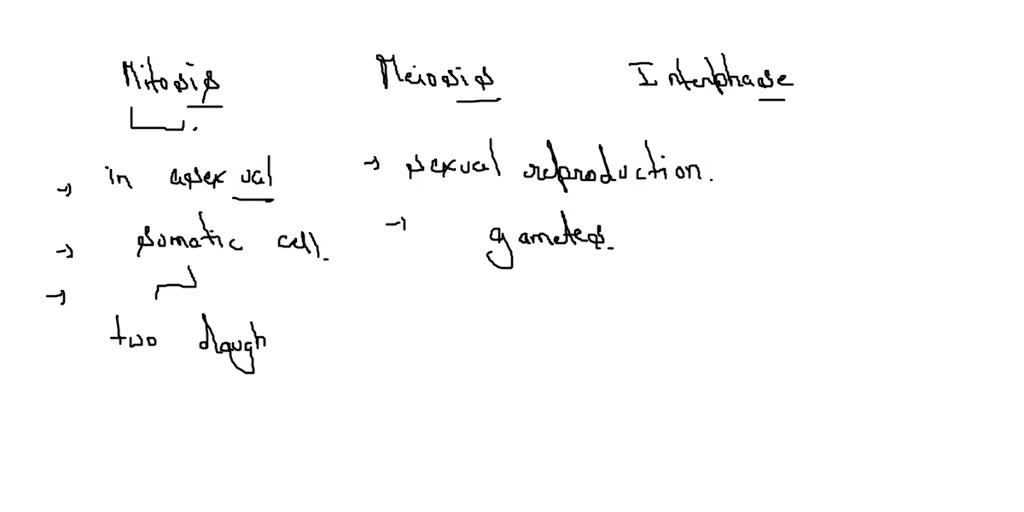 Mitosis Meiosis Interphase
→ in asexual → sexual reproduction.
→ somatic cell. → gametes.
→
two daugh